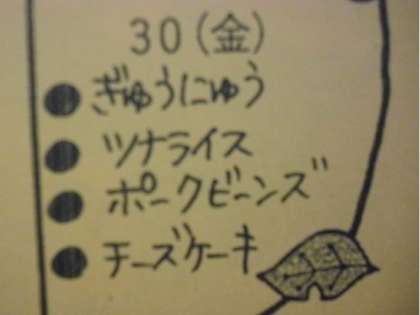 30(金)
●ぎゅうにゅう
●ツナライス
●ポークビーンズ
●チーズケーキ